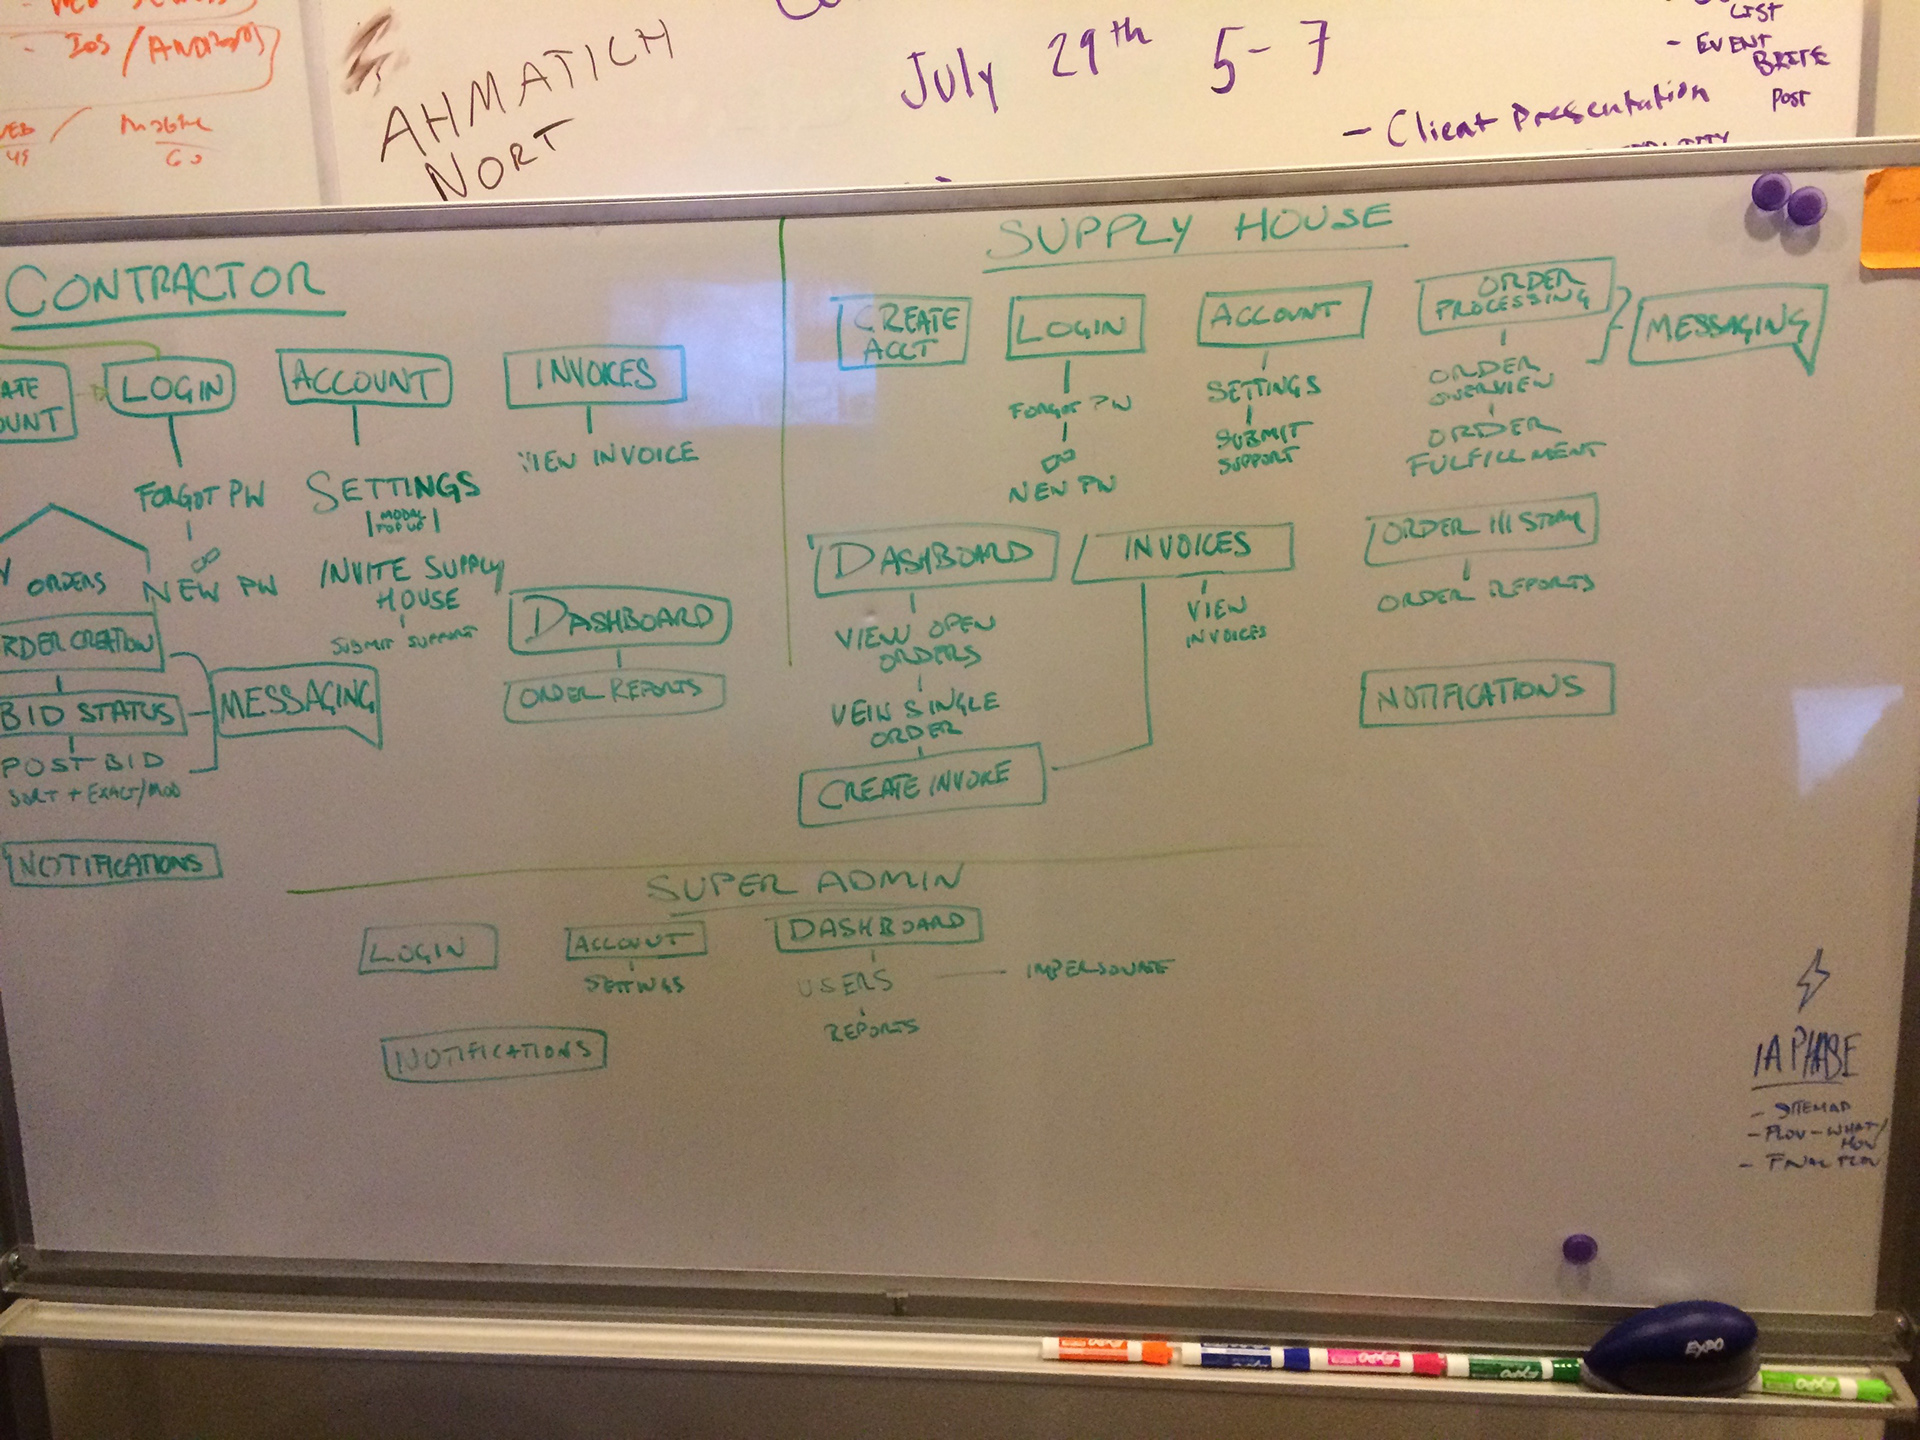 - IOS / ANDROID
AHMATICH
NORT
July 29th 5-7
LIST
- EVENT
BRITE
POST
- Client Presentation
CONTRACTOR
ATE
OUNT
LOGIN
FORGOT PW
NEW PW
ACCOUNT
SETTINGS
MODAL
POP UP
INVITE SUPPLY
HOUSE
SUBMIT SUPPORT
INVOICES
VIEW INVOICE
DASHBOARD
ORDER REPORTS
ORDERS
RDER CREATION
BID STATUS
POST BID
SORT + EXACT/MOD
MESSAGING
NOTIFICATIONS
SUPPLY HOUSE
CREATE
ACCT
LOGIN
FORGOT PW
NEW PW
ACCOUNT
SETTINGS
SUBMIT
SUPPORT
ORDER
PROCESSING
ORDER
OVERVIEW
ORDER
FULFILLMENT
MESSAGING
DASHBOARD
VIEW OPEN
ORDERS
VEIW SINGLE
ORDER
CREATE INVOICE
INVOICES
VIEW
INVOICES
ORDER HISTORY
ORDER REPORTS
NOTIFICATIONS
SUPER ADMIN
LOGIN
ACCOUNT
SETTINGS
DASHBOARD
USERS
IMPERSONATE
REPORTS
NOTIFICATIONS
IA PHASE
- SITEMAP
- FLOW - WHAT/
HOW
- FINAL FLOW
EXPO
EXPO
EXPO
EXPO
EXPO